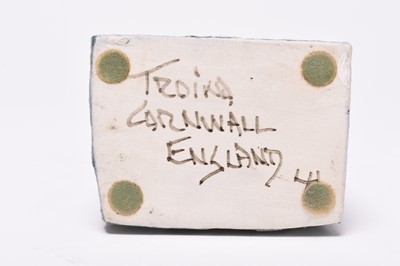 Troika
CORNWALL
ENGLAND